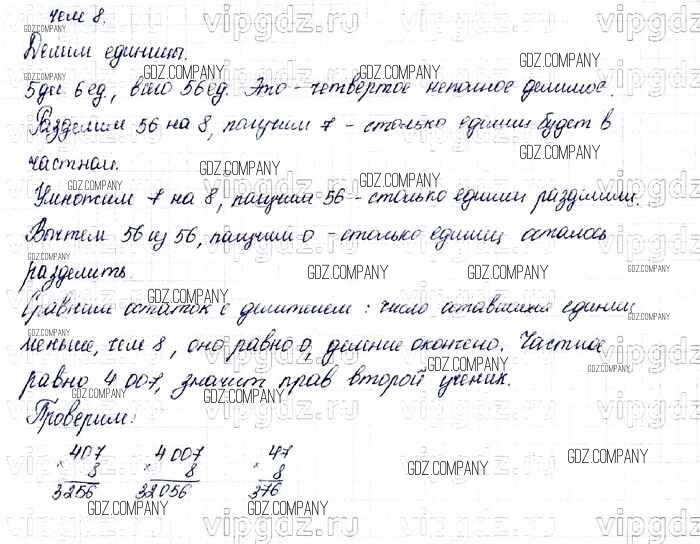 чем 8.
Делим единицы.
5 дес 6 ед., всего 56 ед. Это - четвертое неполное делимое.
Разделим 56 на 8, получим 7 - столько единиц будет в
частном.
Умножим 7 на 8, получим 56 - столько единиц разделили.
Вычтем 56 из 56, получим 0 - столько единиц осталось
разделить.
Сравним остаток с делителем: число оставшихся единиц
меньше, чем 8, оно равно 0, деление окончено. Частное
равно 4 007, значит прав второй ученик.
Проверим:
407 4 007 47
× 8 × 8 × 8
3256 32 056 376
GDZ.COMPANY
vipgdz.ru